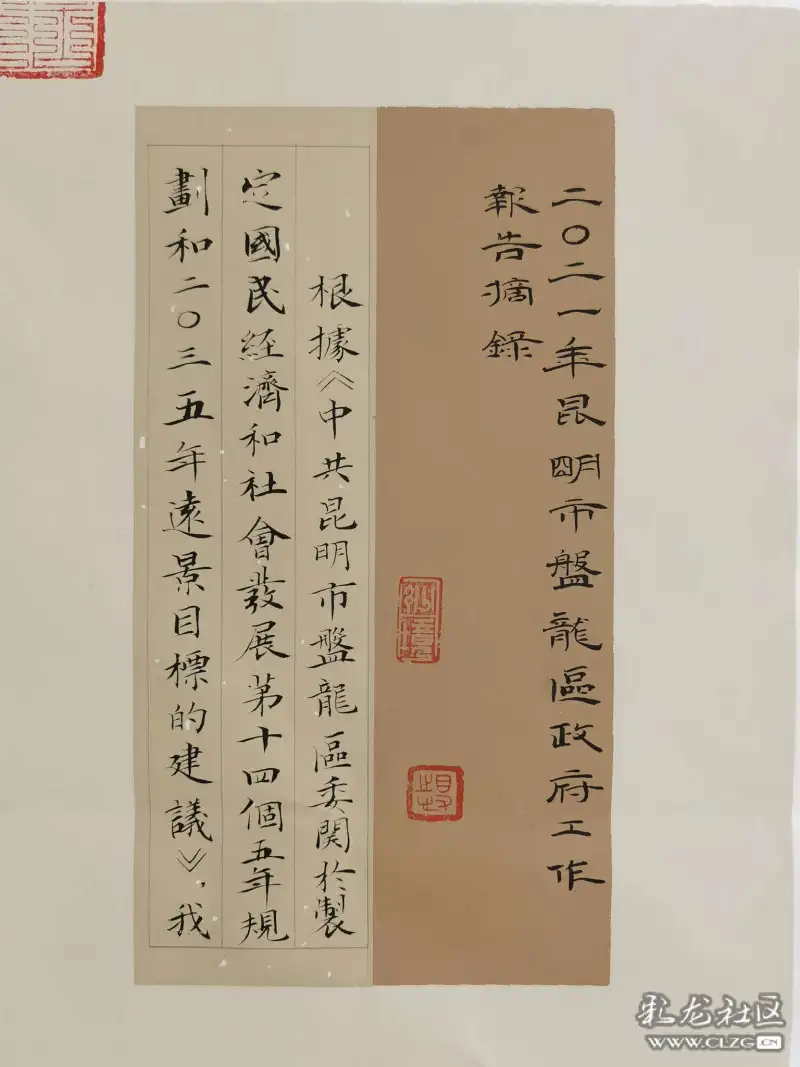 二〇二一年昆明市盤龍區政府工作
報告摘錄
根據《中共昆明市盤龍區委関於製
定國民經濟和社會發展第十四個五年規
劃和二〇三五年遠景目標的建議》，我
彩龙社区
WWW.CLZG.CN